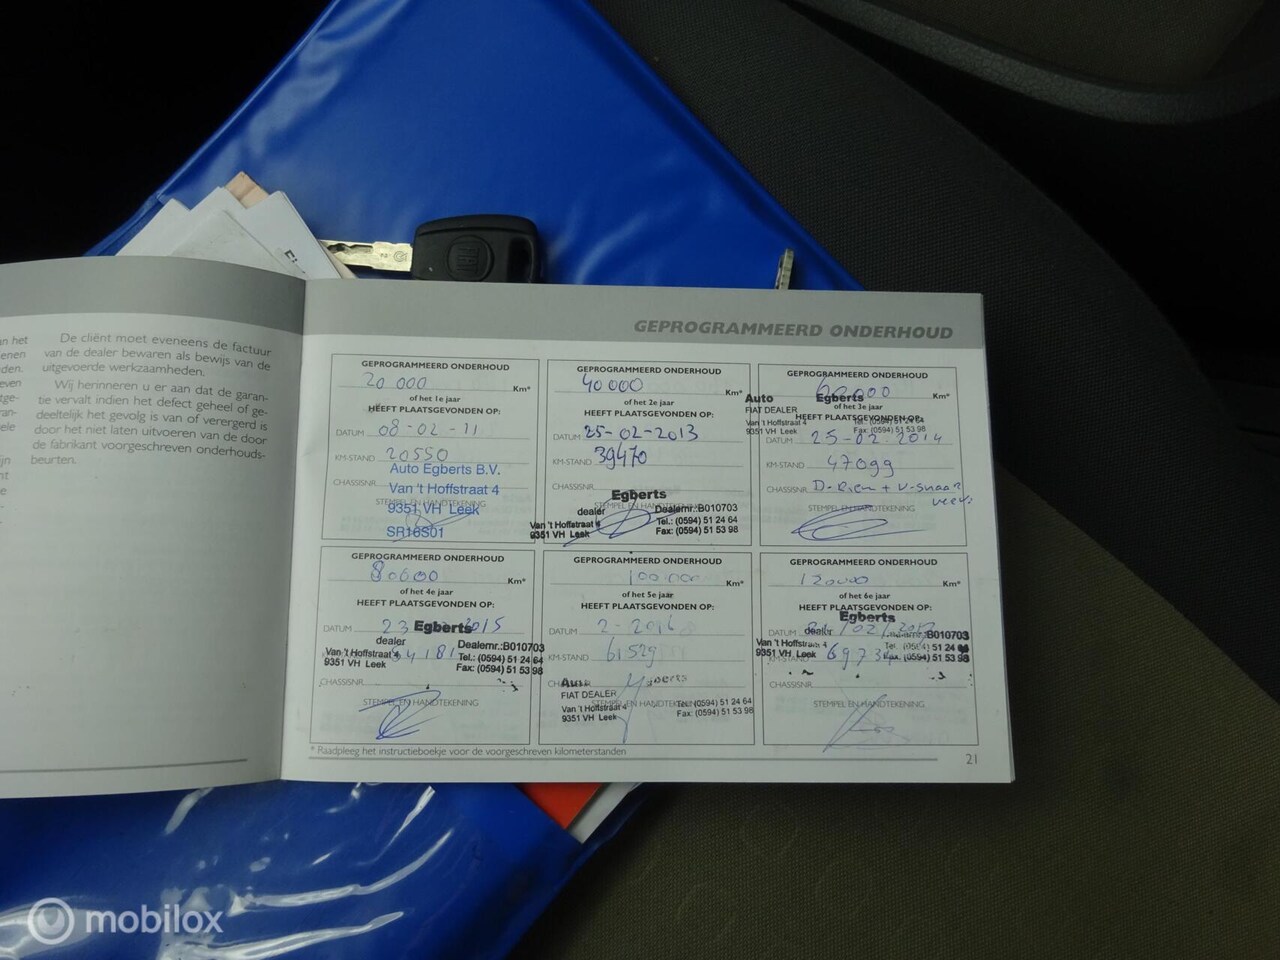 De cliënt moet eveneens de factuur
van de dealer bewaren als bewijs van de
uitgevoerde werkzaamheden.
Wij herinneren u er aan dat de garan-
tie vervalt indien het defect geheel of ge-
deeltelijk het gevolg is van of verergerd is
door het niet laten uitvoeren van de door
de fabrikant voorgeschreven onderhouds-
beurten.
GEPROGRAMMEERD ONDERHOUD
GEPROGRAMMEERD ONDERHOUD
20 000 Km*
of het 1e jaar
HEEFT PLAATSGEVONDEN OP:
DATUM 08-02-11
KM-STAND 20550
Auto Egberts B.V.
CHASSISNR.
Van 't Hoffstraat 4
STEMPEL EN HANDTEKENING
9351 VH Leek
SR16S01
GEPROGRAMMEERD ONDERHOUD
40 000 Km*
of het 2e jaar
HEEFT PLAATSGEVONDEN OP:
DATUM 25-02-2013
KM-STAND 39470
CHASSISNR.
Egberts
STEMPEL EN HANDTEKENING
dealer Dealernr.:B010703
Van 't Hoffstraat 4 Tel.: (0594) 51 24 64
9351 VH Leek Fax: (0594) 51 53 98
GEPROGRAMMEERD ONDERHOUD
60000 Km*
Auto Egberts
of het 3e jaar
FIAT DEALER
HEEFT PLAATSGEVONDEN OP:
Van 't Hoffstraat 4 Tel.: (0594) 51 24 64
9351 VH Leek Fax: (0594) 51 53 98
DATUM 25-02-2014
KM-STAND 47099
CHASSISNR.
STEMPEL EN HANDTEKENING
GEPROGRAMMEERD ONDERHOUD
80000 Km*
of het 4e jaar
HEEFT PLAATSGEVONDEN OP:
DATUM 23 2015
Egberts
dealer Dealernr.:B010703
Van 't Hoffstraat 4 Tel.: (0594) 51 24 64
9351 VH Leek Fax: (0594) 51 53 98
54181
CHASSISNR.
STEMPEL EN HANDTEKENING
GEPROGRAMMEERD ONDERHOUD
100.000 Km*
of het 5e jaar
HEEFT PLAATSGEVONDEN OP:
DATUM 2-2016
KM-STAND 61529
CHASSISNR.
FIAT DEALER
STEMPEL EN HANDTEKENING
Van 't Hoffstraat 4 Tel.: (0594) 51 24 64
9351 VH Leek Fax: (0594) 51 53 98
GEPROGRAMMEERD ONDERHOUD
120000 Km*
of het 6e jaar
HEEFT PLAATSGEVONDEN OP:
Egberts
DATUM
dealer Dealernr.:B010703
Van 't Hoffstraat 4 Tel.: (0594) 51 24
9351 VH Leek Fax: (0594) 51 53 98
KM-STAND
CHASSISNR.
STEMPEL EN HANDTEKENING
* Raadpleeg het instructieboekje voor de voorgeschreven kilometerstanden
21
mobilox